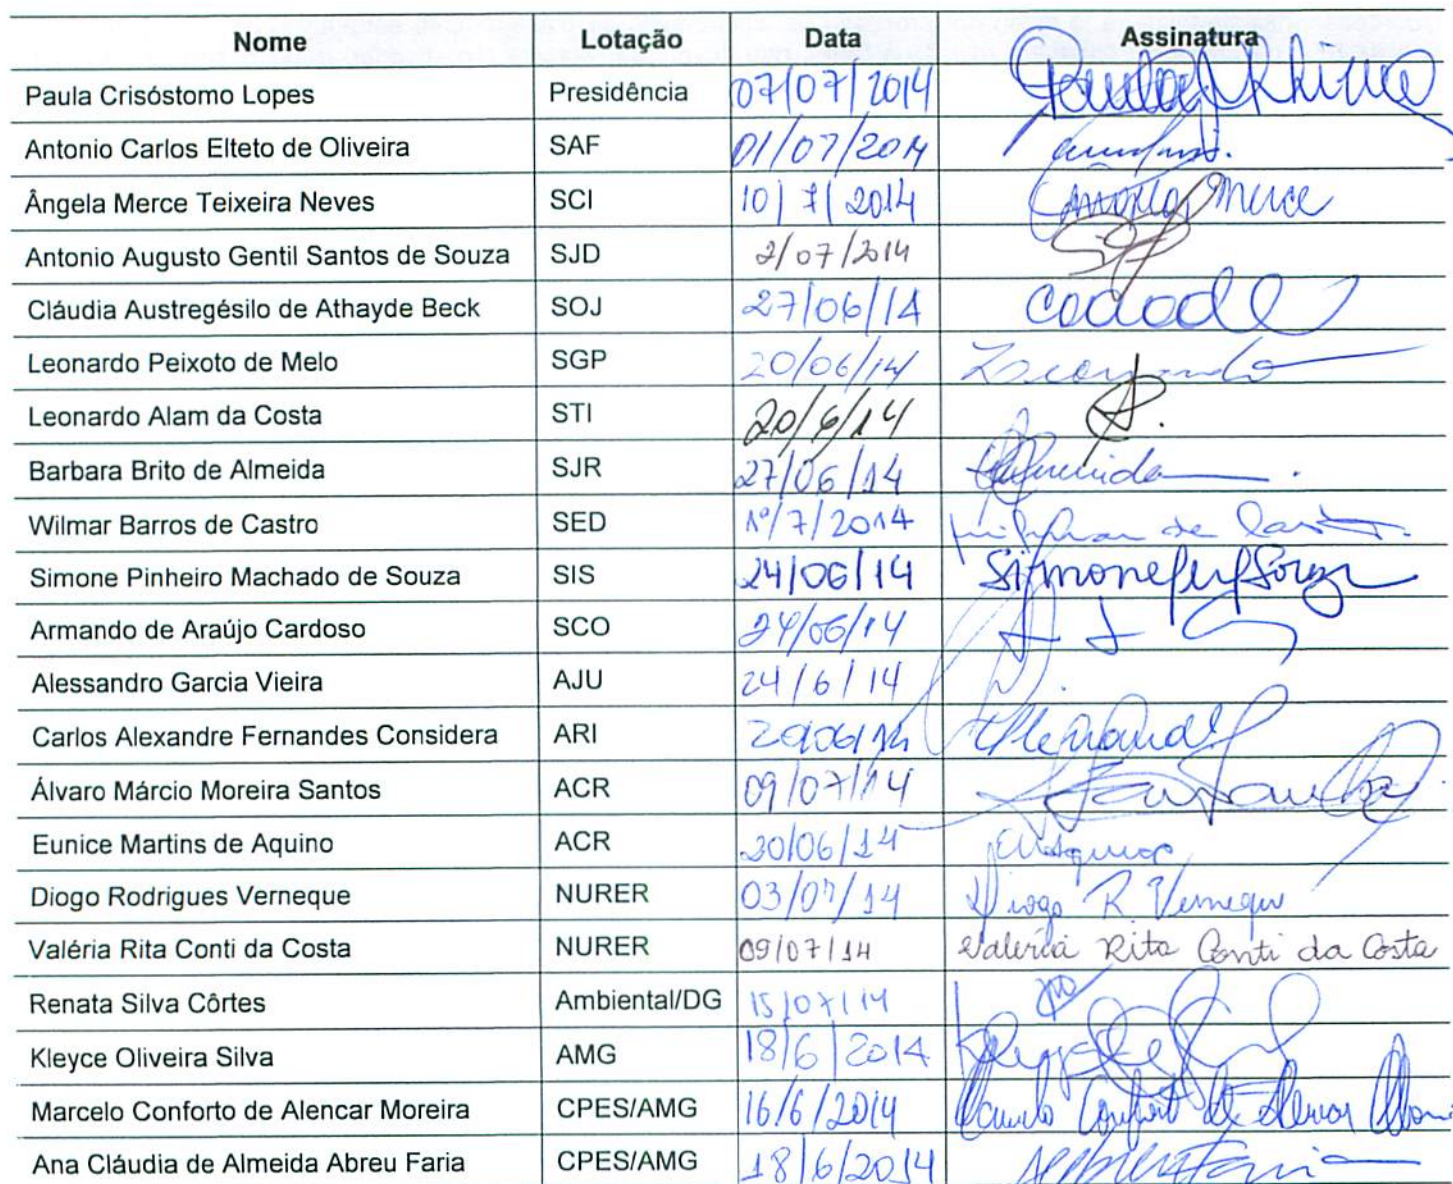 Nome Lotação Data Assinatura
Paula Crisóstomo Lopes Presidência 07/07/2014
Antonio Carlos Elteto de Oliveira SAF 01/07/2014
Ângela Merce Teixeira Neves SCI 10/7/2014 Ângela Merce
Antonio Augusto Gentil Santos de Souza SJD 2/07/2014
Cláudia Austregésilo de Athayde Beck SOJ 27/06/14
Leonardo Peixoto de Melo SGP 20/06/14 Leonardo
Leonardo Alam da Costa STI 20/6/14
Barbara Brito de Almeida SJR 27/06/14 Almeida
Wilmar Barros de Castro SED 1º/7/2014
Simone Pinheiro Machado de Souza SIS 24/06/14
Armando de Araújo Cardoso SCO 24/06/14
Alessandro Garcia Vieira AJU 24/6/14
Carlos Alexandre Fernandes Considera ARI
Álvaro Márcio Moreira Santos ACR 09/07/14
Eunice Martins de Aquino ACR 20/06/14
Diogo Rodrigues Verneque NURER 03/07/14 Diogo R. Verneque
Valéria Rita Conti da Costa NURER 09/07/14 Valéria Rita Conti da Costa
Renata Silva Côrtes Ambiental/DG 15/07/14
Kleyce Oliveira Silva AMG 18/6/2014
Marcelo Conforto de Alencar Moreira CPES/AMG 16/6/2014 Marcelo Conforto de Alencar
Ana Cláudia de Almeida Abreu Faria CPES/AMG 18/6/2014